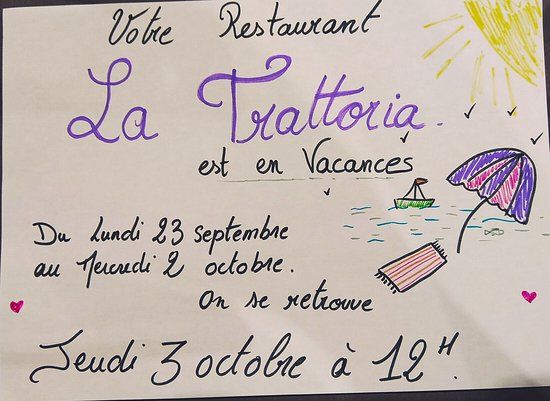 Votre Restaurant
La Trattoria.
est en Vacances
Du Lundi 23 septembre
au Mercredi 2 octobre.
On se retrouve
Jeudi 3 octobre à 12H.